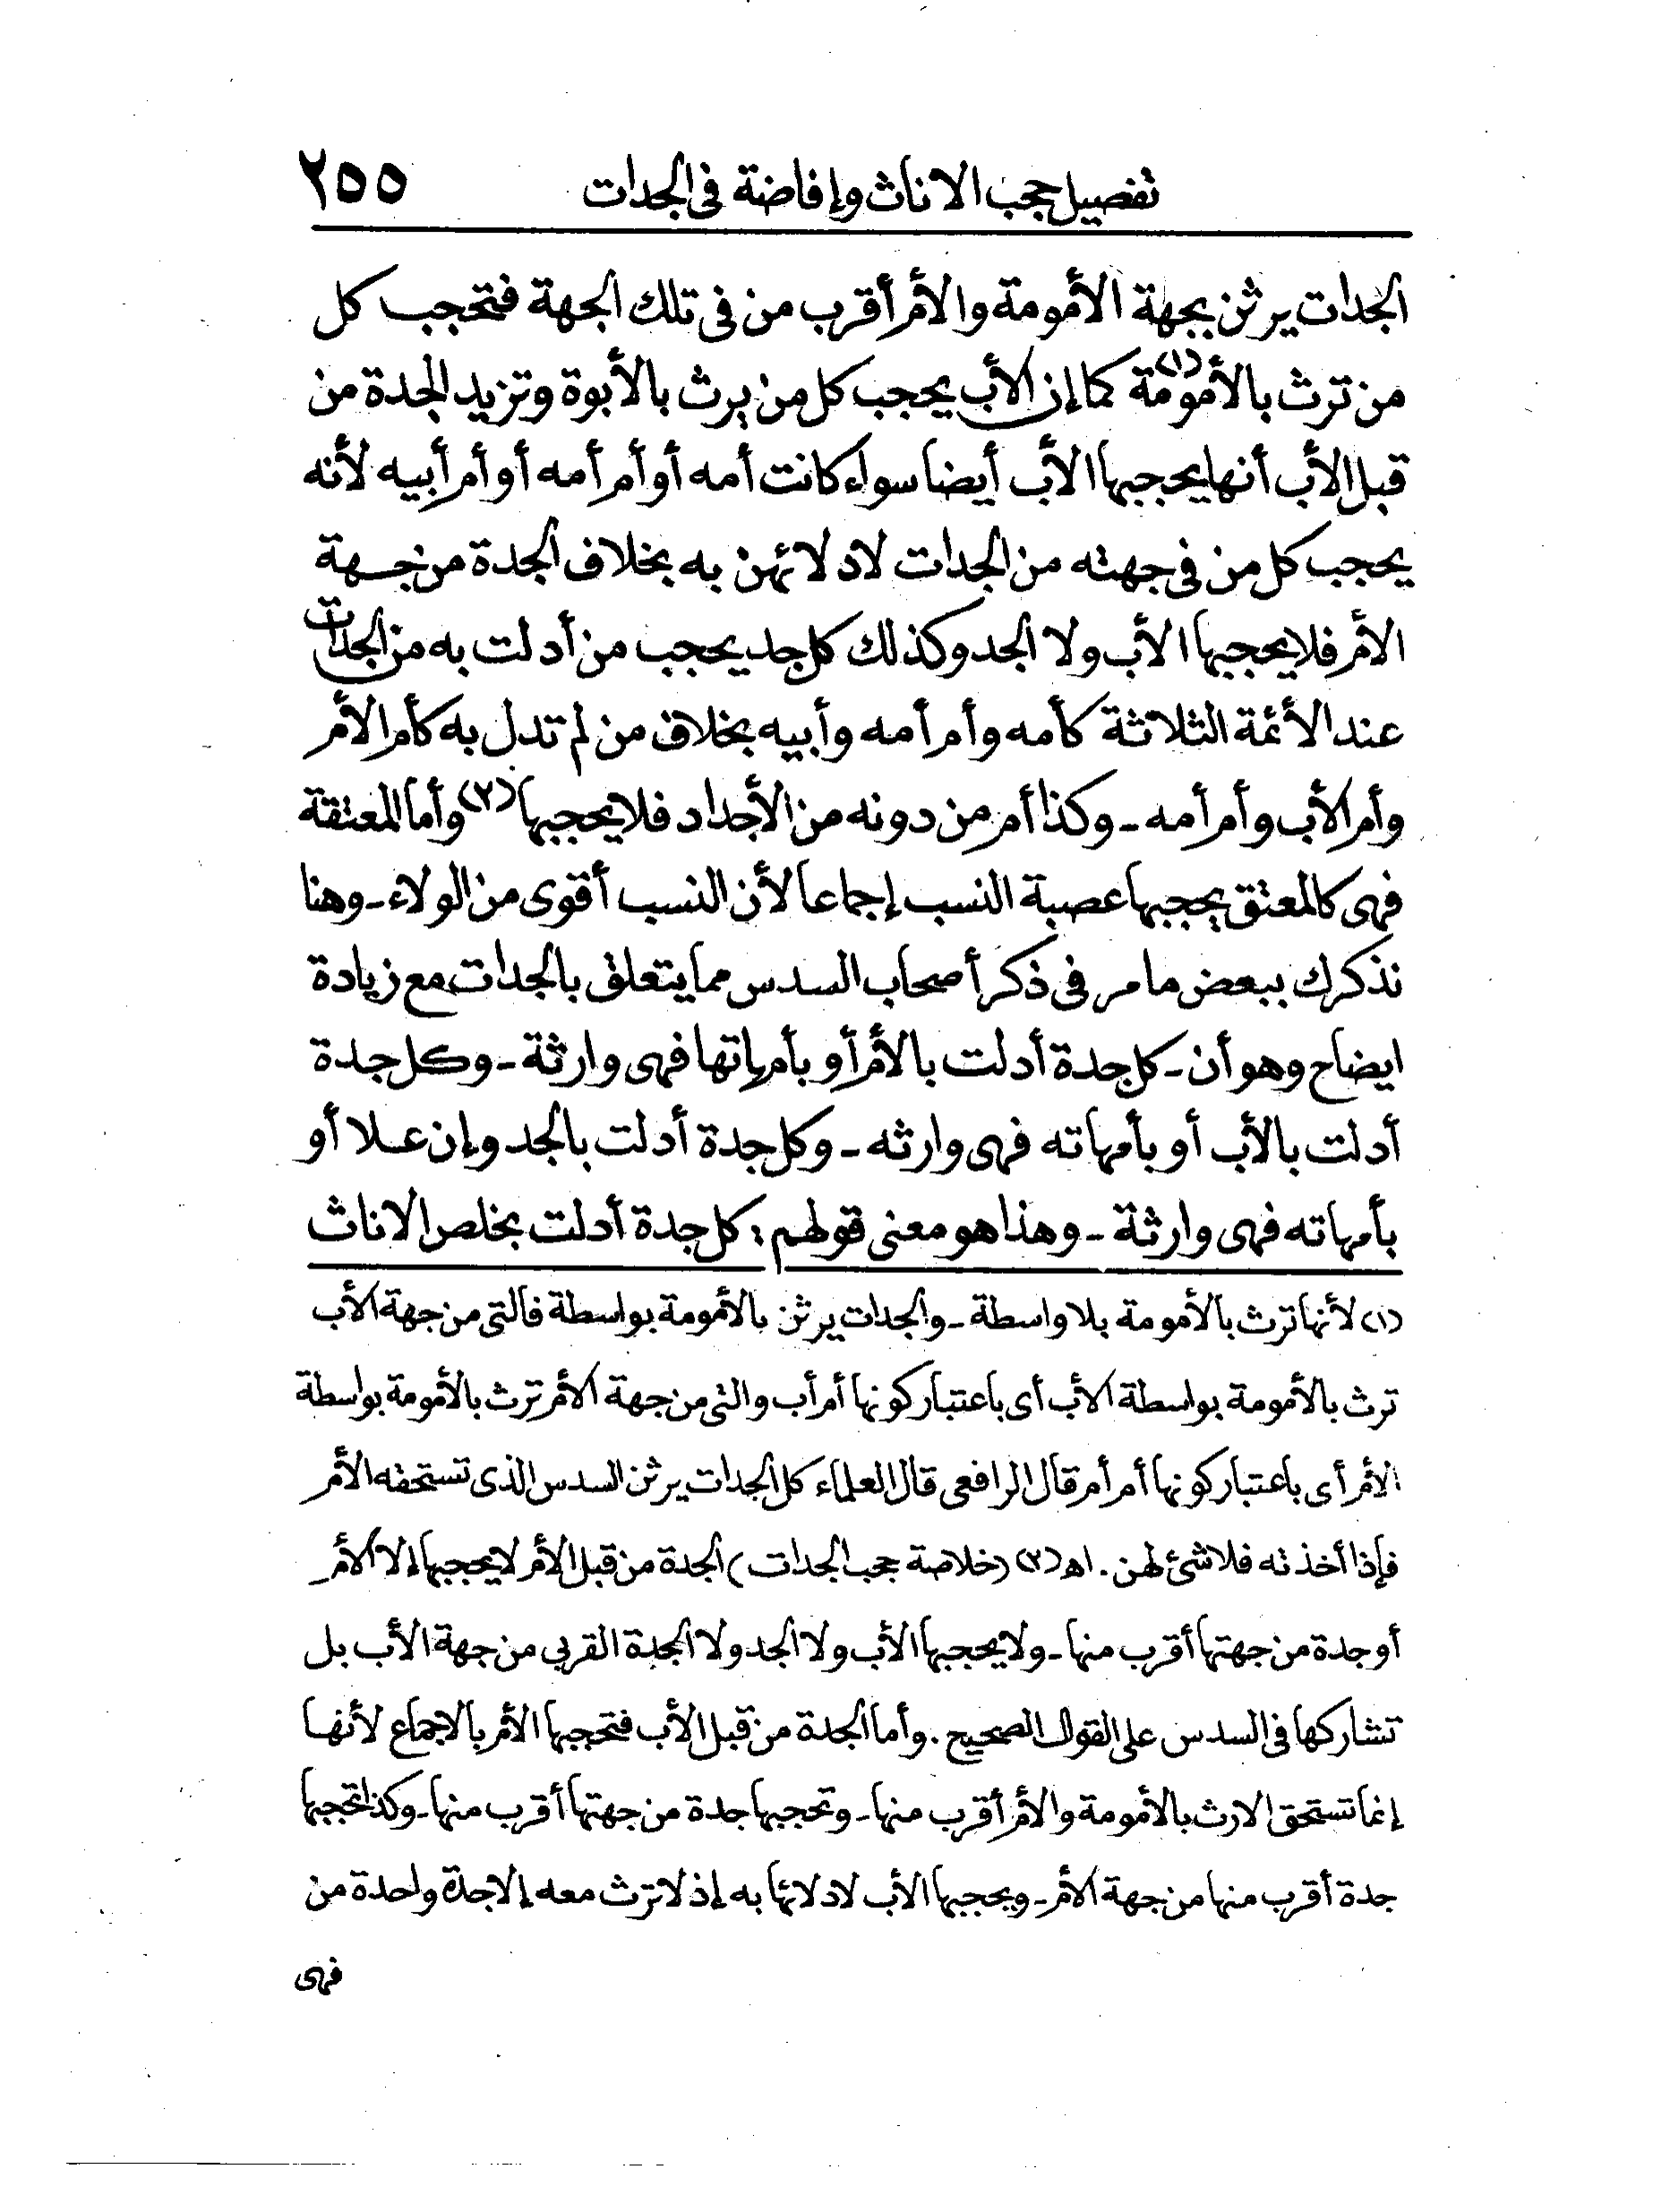 تفصيل حجب الاناث وإفاضة فى الجدات ٢٥٥
الجدات يرثن بجهة الأمومة والأم أقرب من فى تلك الجهة فتحجب كل
من ترث بالأمومة (١) كما إن الأب يحجب كل من يرث بالأبوة وتزيد الجدة من
قبل الأب أنها يحجبها الأب أيضا سواء كانت أمه أو أم أمه أو أم أبيه لأنه
يحجب كل من فى جهته من الجدات لادلائهن به بخلاف الجدة من جهة
الأم فلا يحجبها الأب ولا الجد وكذلك كل جد يحجب من أدلت به من الجدات
عند الأئمة الثلاثة كأمه وأم أمه وأبيه بخلاف من لم تدل به كأم الأم
وأم الأب وأم أمه - وكذا أم من دونه من الأجداد فلا يحجبها (٢) وأما المعتقة
فهى كالمعتق يحجبها عصبة النسب إجماعا لأن النسب أقوى من الولاء - وهنا
نذكرك ببعض ما مر فى ذكر أصحاب السدس مما يتعلق بالجدات مع زيادة
ايضاح وهو أن - كل جدة أدلت بالأم أو بأمهاتها فهى وارثة - وكل جدة
أدلت بالأب أو بأمهاته فهى وارثه - وكل جدة أدلت بالجد وإن علا أو
بأمهاته فهى وارثة - وهذا هو معنى قولهم : كل جدة أدلت بخلص الاناث
(١) لأنها ترث بالأمومة بلا واسطة - والجدات يرثن بالأمومة بواسطة فالتى من جهة الأب
ترث بالأمومة بواسطة الأب أى باعتبار كونها أم أب والتى من جهة الأم ترث بالأمومة بواسطة
الأم أى باعتبار كونها أم أم قال الرافعى قال العلماء كل الجدات يرثن السدس الذى تستحقه الأم
فإذا أخذته فلا شئ لهن . اهـ (٢) (خلاصة حجب الجدات) الجدة من قبل الأم لا يحجبها إلا الأم -
أو جدة من جهتها أقرب منها - ولا يحجبها الأب ولا الجد ولا الجدة القربى من جهة الأب بل
تشاركها فى السدس على القول الصحيح . وأما الجدة من قبل الأب فتحجبها الأم بالاجماع لأنها
إنما تستحق الارث بالأمومة والأم أقرب منها - وتحجبها جدة من جهتها أقرب منها - وكذا تحجبها
جدة أقرب منها من جهة الأم - ويحجبها الأب لادلائها به إذ لا ترث معه إلا جدة واحدة من
فهى